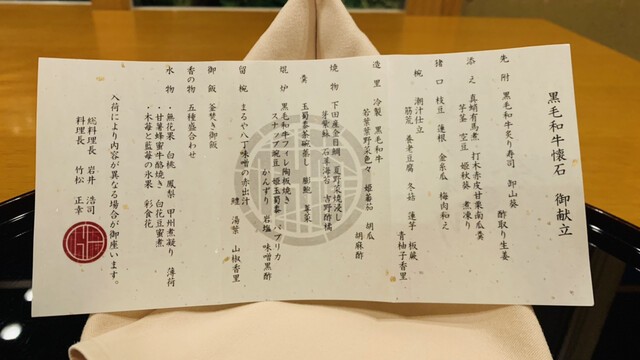 黒毛和牛懐石　御献立
先附　黒毛和牛炙り寿司　卸山葵　酢取り生姜
添え　真蛸有馬煮　打木赤皮甘栗南瓜羹
芋茎　空豆　姫秋葵　煮凍り
猪口　枝豆　蓮根　金糸瓜　梅肉和え
椀　潮汁仕立
筋荒　養老豆腐　冬菇　蓮芋　板蕨
青柚子香里
造里　冷製　黒毛和牛
若葉葉野菜色々　姫蕃茄　胡瓜
胡麻酢
焼物　下田産金目鯛　夏野菜焼浸し
芽紫蘇　石茸海苔　吉野酢橘
羹　玉蜀黍茶碗蒸し　鱶鮑　茸菜
焜炉　黒毛和牛フィレ陶板焼き
スナップ豌豆　姫玉蜀黍　パプリカ
かんずり　岩塩　味噌黒酢
留椀　まるや八丁味噌の赤出汁
鱧　湯葉　山椒香里
御飯　釜焚き御飯
香の物　五種盛合わせ
水物　・無花果　白桃　鳳梨　甲州煮凝り　薄荷
・甘薯蜂蜜牛酪焼き　白花豆蜜煮
・木苺と藍苺の氷果　彩食花
入荷により内容が異なる場合が御座います
総料理長　岩井　浩司
料理長　竹松　正幸